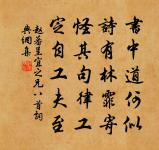 書中道何似
詩有林霏寄
怪其句律工
定自工夫至
趙蕃呈宜之兄八首詞
典網集